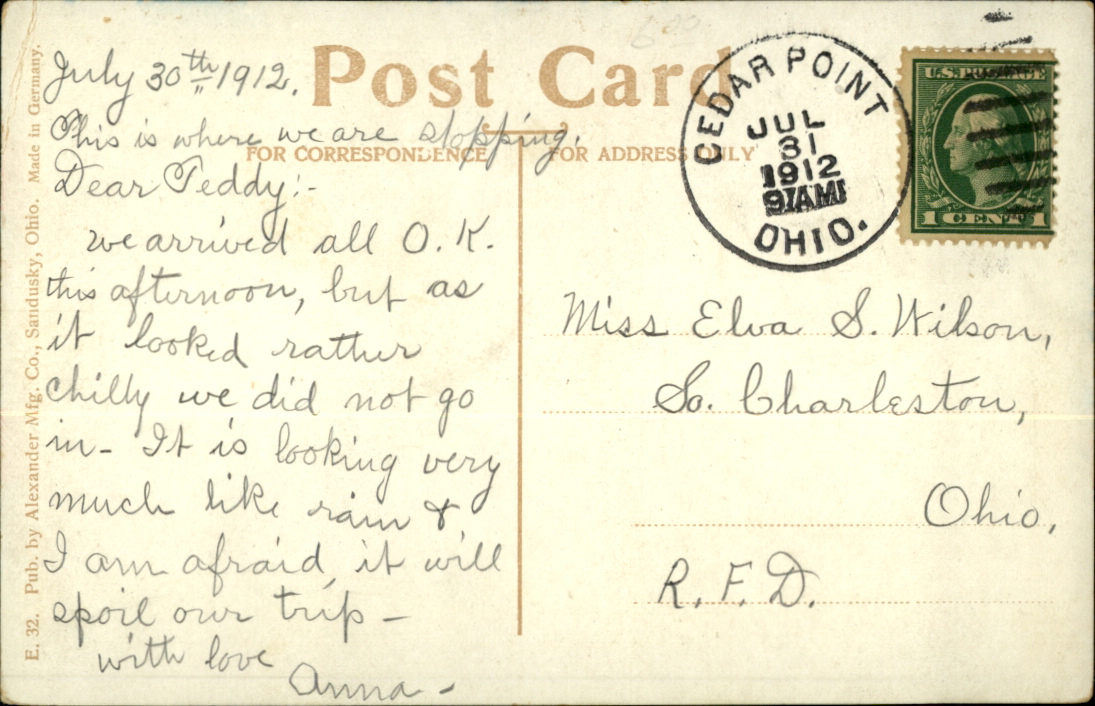 Post Card
FOR CORRESPONDENCE
FOR ADDRESS ONLY
E. 32. Pub. by Alexander Mfg. Co., Sandusky, Ohio. Made in Germany.
July 30th 1912.
This is where we are stopping.
Dear Teddy:-
we arrived all O.K.
this afternoon, but as
it looked rather
chilly we did not go
in- It is looking very
much like rain &
I am afraid it will
spoil our trip -
with love
Anna -
CEDAR POINT
JUL
31
1912
9 AM
OHIO.
U.S. POSTAGE
1 CENT 1
Miss Elva S. Wilson,
So. Charleston,
Ohio,
R.F.D.